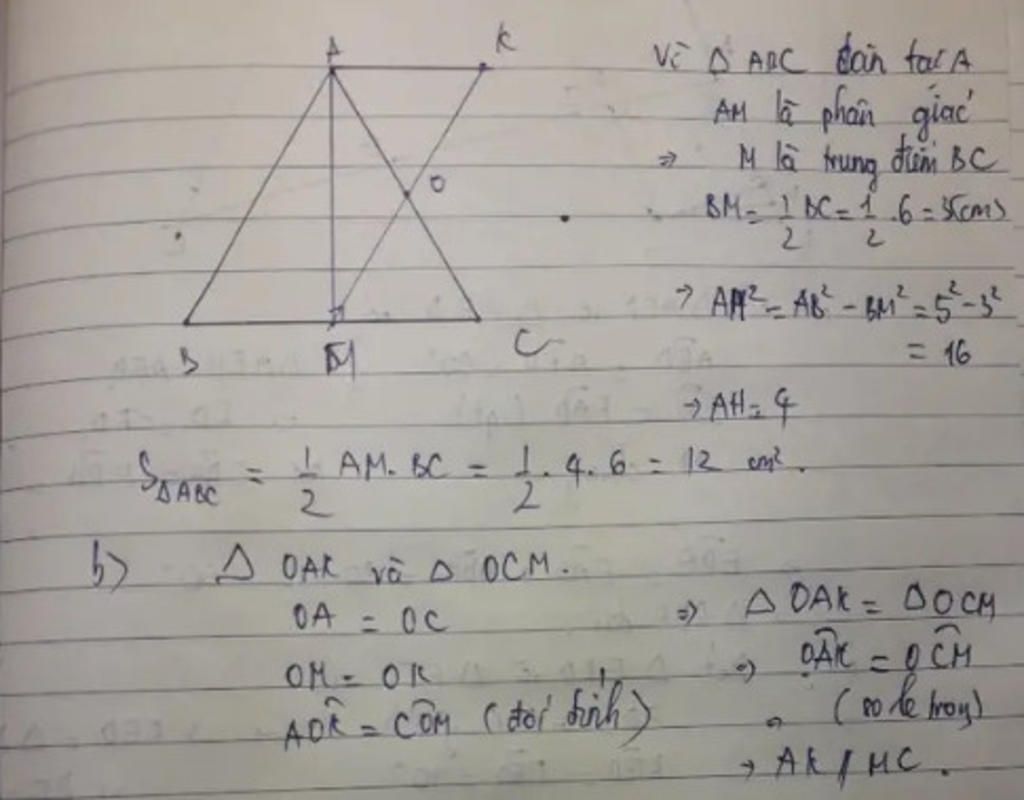 A K
O
B M C
Vì Δ ABC cân tại A
AM là phân giác
⇒ M là trung điểm BC
BM = 1/2 BC = 1/2 . 6 = 3(cm)
→ AM² = AB² - BM² = 5² - 3²
= 16
→ AM = 4
S ΔABC = 1/2 AM. BC = 1/2 . 4 . 6 = 12 cm².
b) Δ OAK và Δ OCM.
OA = OC
OM = OK
AOK = COM (đối đỉnh)
⇒ Δ OAK = Δ OCM
⇒ OAK = OCM
(so le trong)
→ AK // MC.